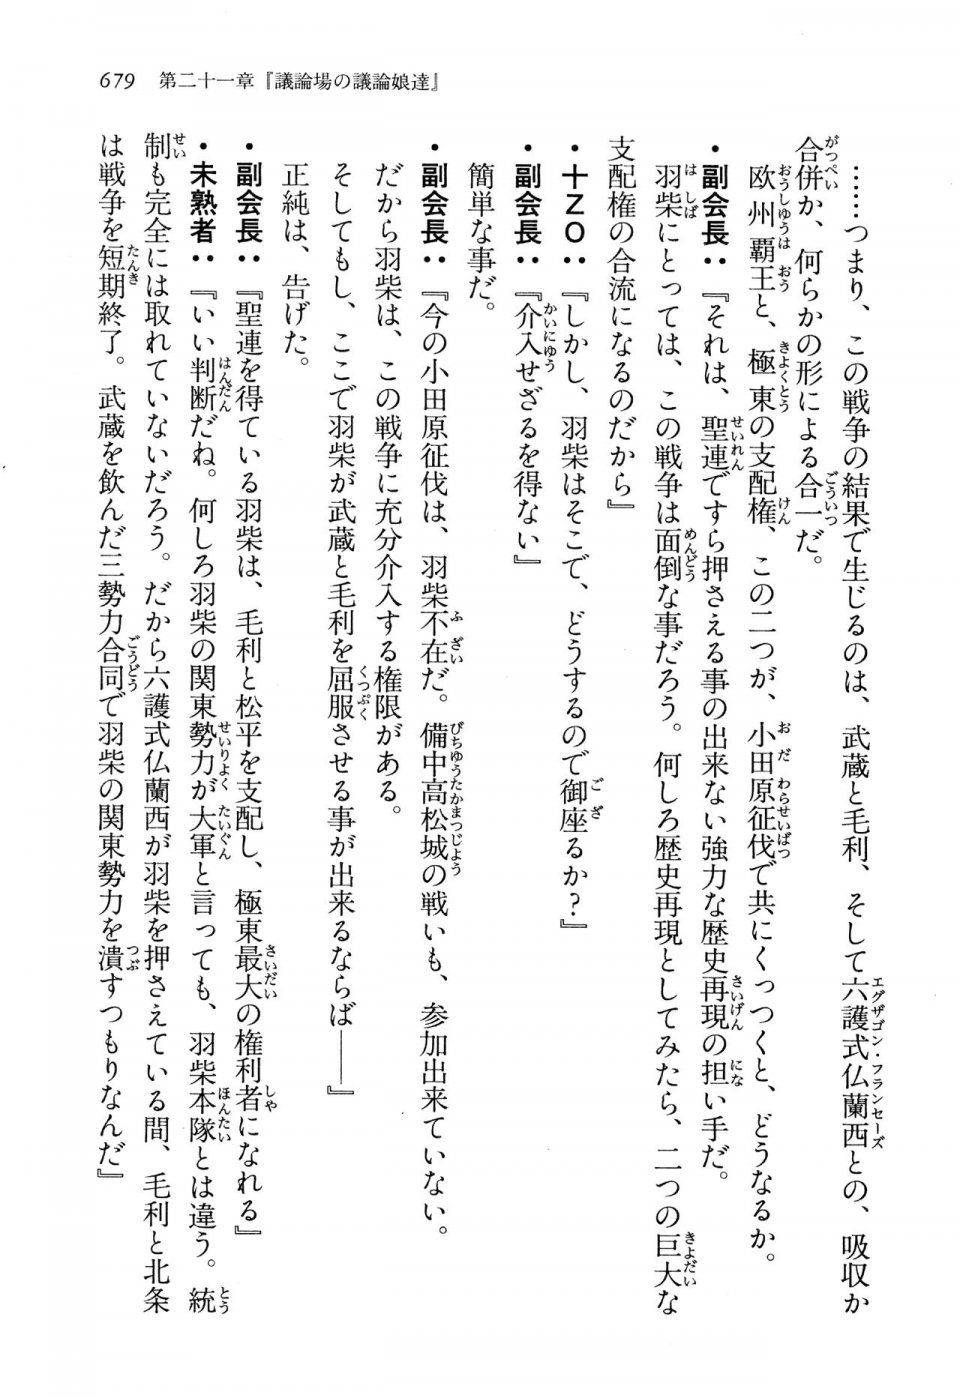 679　第二十一章『議論場の議論娘達』
……つまり、この戦争の結果で生じるのは、武蔵と毛利、そして六護式仏蘭西との、吸収か
合併か、何らかの形による合一だ。
　欧州覇王と、極東の支配権、この二つが、小田原征伐で共にくっつくと、どうなるか。
・副会長：『それは、聖連ですら押さえる事の出来ない強力な歴史再現の担い手だ。
　羽柴にとっては、この戦争は面倒な事だろう。何しろ歴史再現としてみたら、二つの巨大な
支配権の合流になるのだから』
・十ＺＯ：『しかし、羽柴はそこで、どうするので御座るか？』
・副会長：『介入せざるを得ない』
　簡単な事だ。
・副会長：『今の小田原征伐は、羽柴不在だ。備中高松城の戦いも、参加出来ていない。
　だから羽柴は、この戦争に充分介入する権限がある。
　そしてもし、ここで羽柴が武蔵と毛利を屈服させる事が出来るならば――』
　正純は、告げた。
・副会長：『聖連を得ている羽柴は、毛利と松平を支配し、極東最大の権利者になれる』
・未熟者：『いい判断だね。何しろ羽柴の関東勢力が大軍と言っても、羽柴本隊とは違う。統
制も完全には取れていないだろう。だから六護式仏蘭西が羽柴を押さえている間、毛利と北条
は戦争を短期終了。武蔵を飲んだ三勢力合同で羽柴の関東勢力を潰すつもりなんだ』